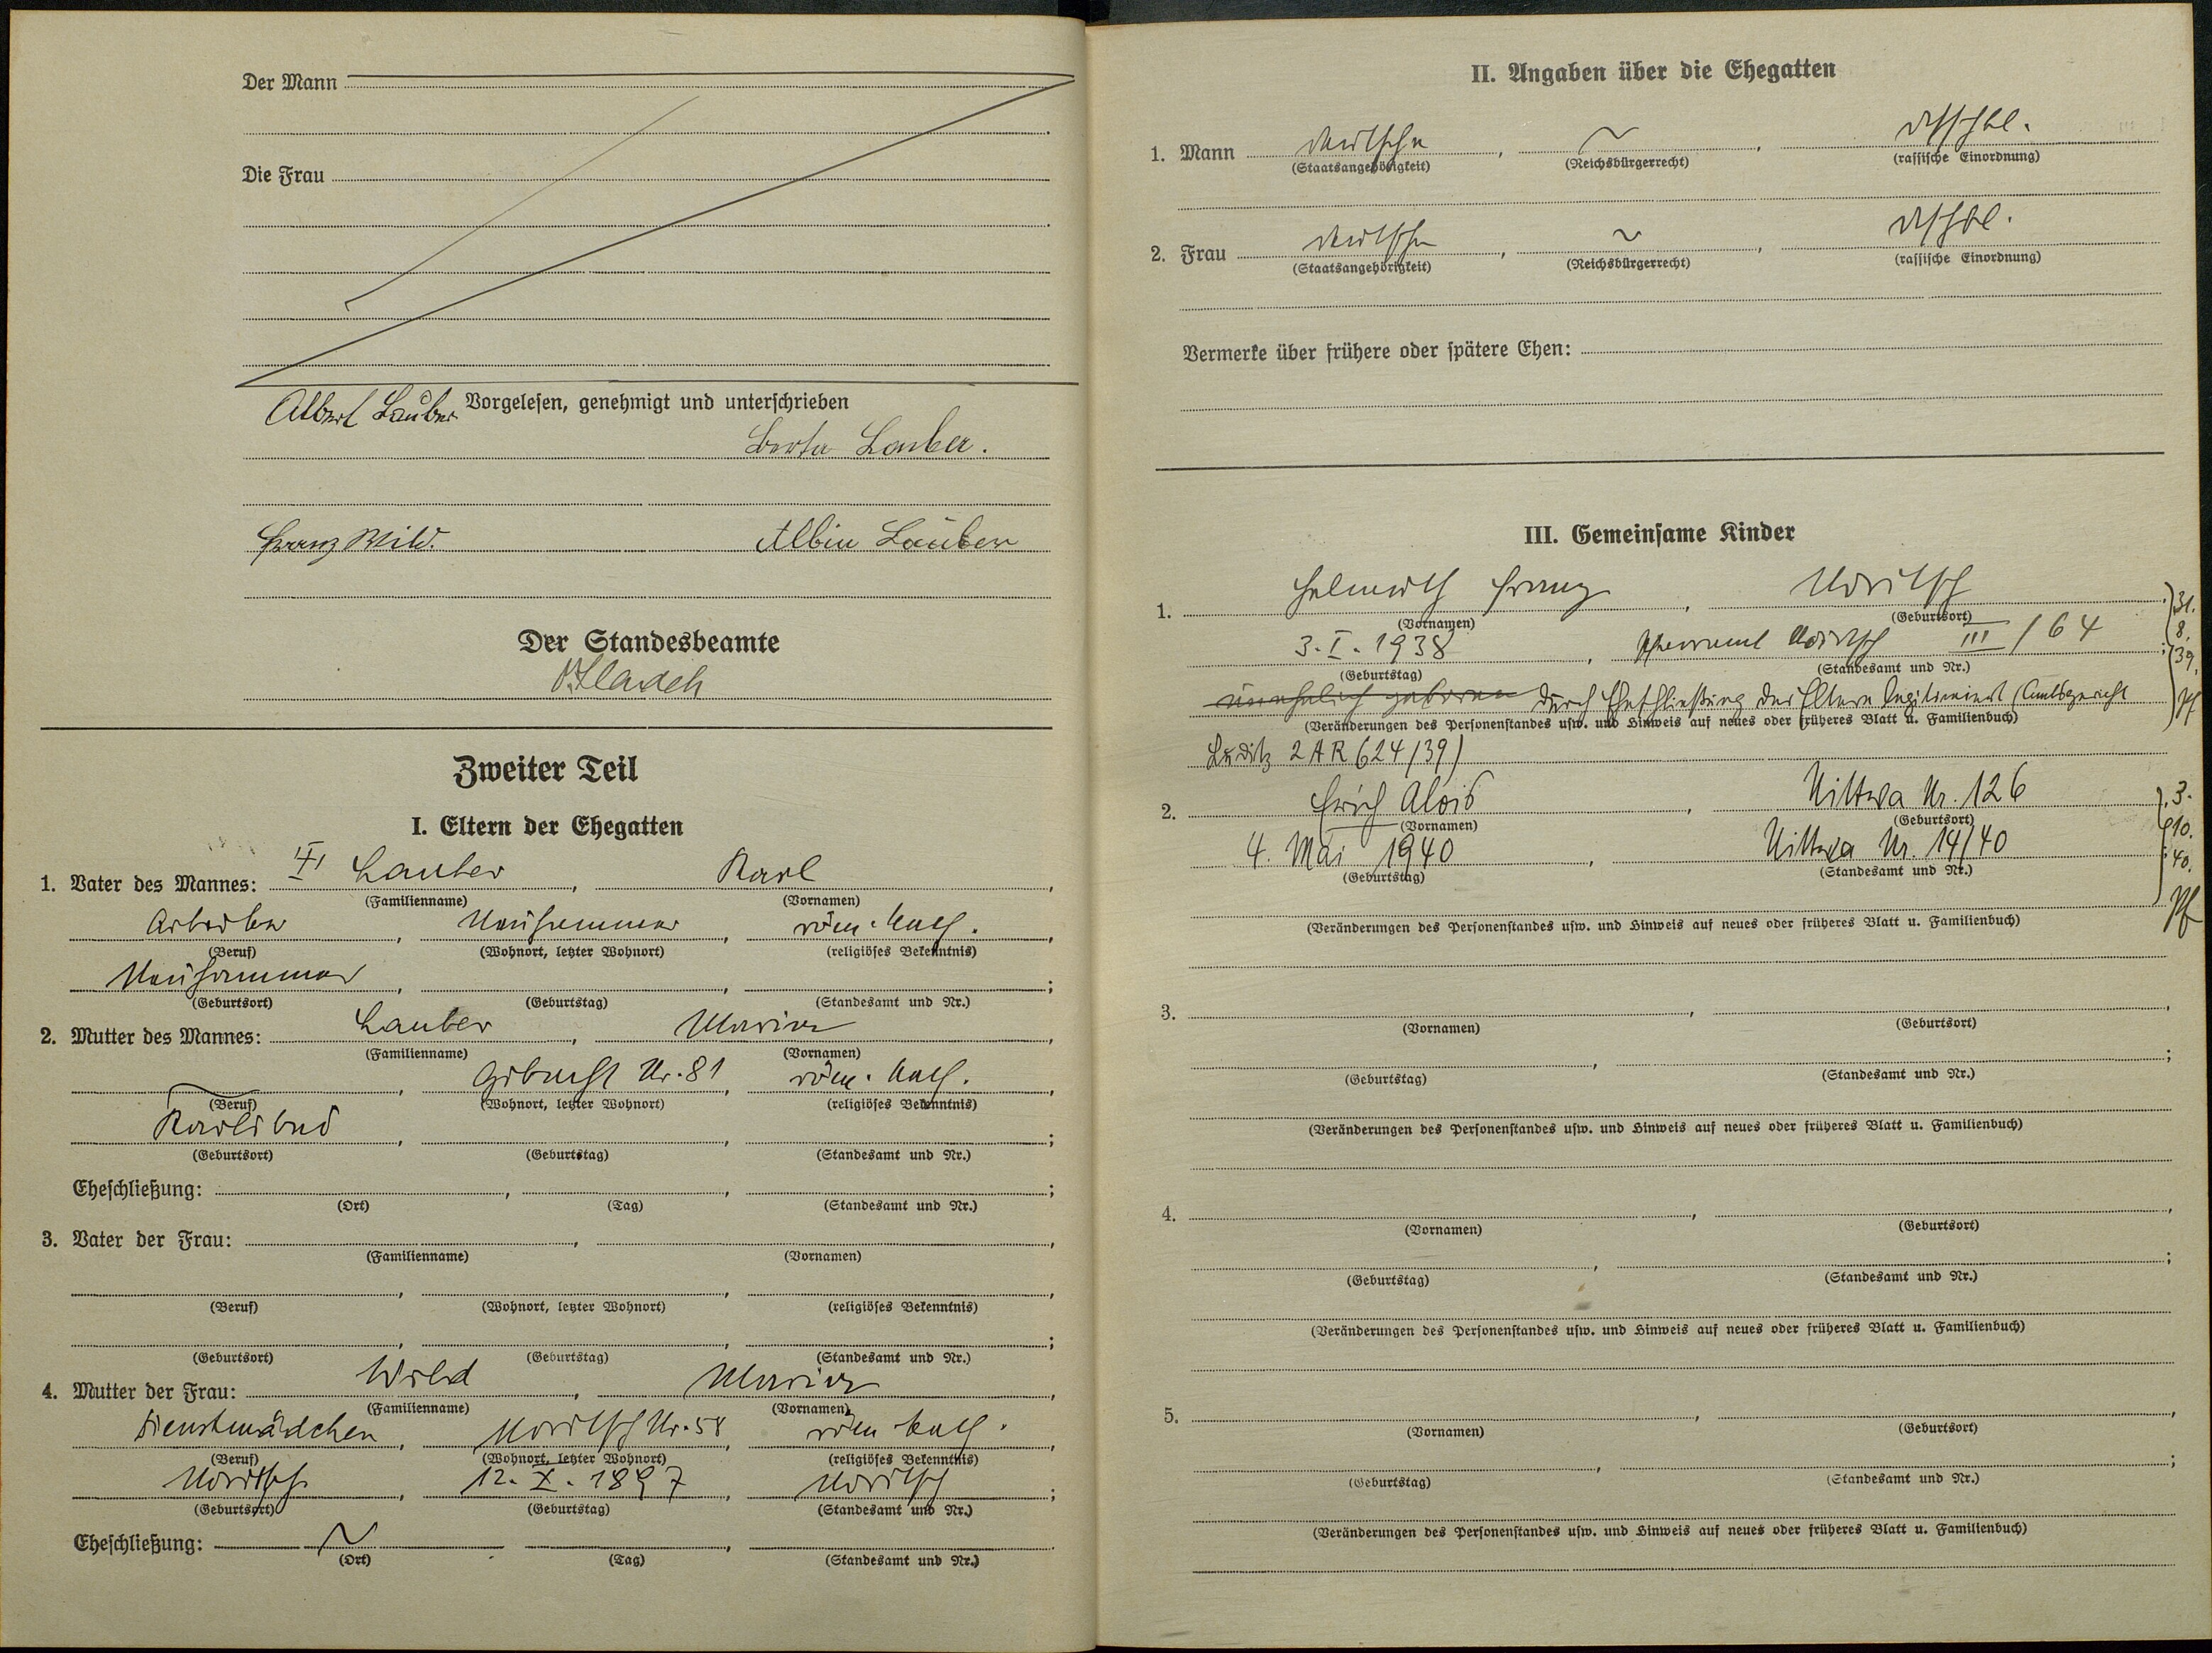 Der Mann
Die Frau
Albert Lauber Vorgelesen, genehmigt und unterschrieben
Berta Lauber.
Franz Wild. Albin Lauber
Der Standesbeamte
Zweiter Teil
I. Eltern der Ehegatten
1. Vater des Mannes: Lauber, Karl,
(Familienname) (Vornamen)
Arbeiter, Neuhammer, röm. kath.,
(Beruf) (Wohnort, letzter Wohnort) (religiöses Bekenntnis)
Neuhammer, , ;
(Geburtsort) (Geburtstag) (Standesamt und Nr.)
2. Mutter des Mannes: Lauber, Maria,
(Familienname) (Vornamen)
, Nr. 81, röm. kath.,
(Beruf) (Wohnort, letzter Wohnort) (religiöses Bekenntnis)
Karlsbad, , ;
(Geburtsort) (Geburtstag) (Standesamt und Nr.)
Eheschließung: , , ;
(Ort) (Tag) (Standesamt und Nr.)
3. Vater der Frau: , ,
(Familienname) (Vornamen)
, , ,
(Beruf) (Wohnort, letzter Wohnort) (religiöses Bekenntnis)
, , ;
(Geburtsort) (Geburtstag) (Standesamt und Nr.)
4. Mutter der Frau: Wild, Maria,
(Familienname) (Vornamen)
Dienstmädchen, Udritsch Nr. 58, röm kath.,
(Beruf) (Wohnort, letzter Wohnort) (religiöses Bekenntnis)
Udritsch, 12. X. 1897, Udritsch;
(Geburtsort) (Geburtstag) (Standesamt und Nr.)
Eheschließung: ~ , .
(Ort) (Tag) (Standesamt und Nr.)
II. Angaben über die Ehegatten
1. Mann deutsche, ~, dtschbl.
(Staatsangehörigkeit) (Reichsbürgerrecht) (rassische Einordnung)
2. Frau deutsche, ~, dtschbl.
(Staatsangehörigkeit) (Reichsbürgerrecht) (rassische Einordnung)
Vermerke über frühere oder spätere Ehen:
III. Gemeinsame Kinder
1. Helmuth Franz, Udritsch; 31.
(Vornamen) (Geburtsort) 8.
3. I. 1938, Pfarramt Udritsch III / 64; 39.
(Geburtstag) (Standesamt und Nr.)
unehelich geboren durch Eheschließung der Eltern legitimiert (Amtsgericht
(Veränderungen des Personenstandes usw. und Hinweis auf neues oder früheres Blatt u. Familienbuch)
Luditz 2 AR 624/39)
2. Erich Alois, Uittwa Nr. 126, 3.
(Vornamen) (Geburtsort) 10.
4. Mai 1940, Uittwa Nr. 14/40; 40.
(Geburtstag) (Standesamt und Nr.)
(Veränderungen des Personenstandes usw. und Hinweis auf neues oder früheres Blatt u. Familienbuch)
3. , ,
(Vornamen) (Geburtsort)
, ;
(Geburtstag) (Standesamt und Nr.)
(Veränderungen des Personenstandes usw. und Hinweis auf neues oder früheres Blatt u. Familienbuch)
4. , ,
(Vornamen) (Geburtsort)
, ;
(Geburtstag) (Standesamt und Nr.)
(Veränderungen des Personenstandes usw. und Hinweis auf neues oder früheres Blatt u. Familienbuch)
5. , ,
(Vornamen) (Geburtsort)
, ;
(Geburtstag) (Standesamt und Nr.)
(Veränderungen des Personenstandes usw. und Hinweis auf neues oder früheres Blatt u. Familienbuch)